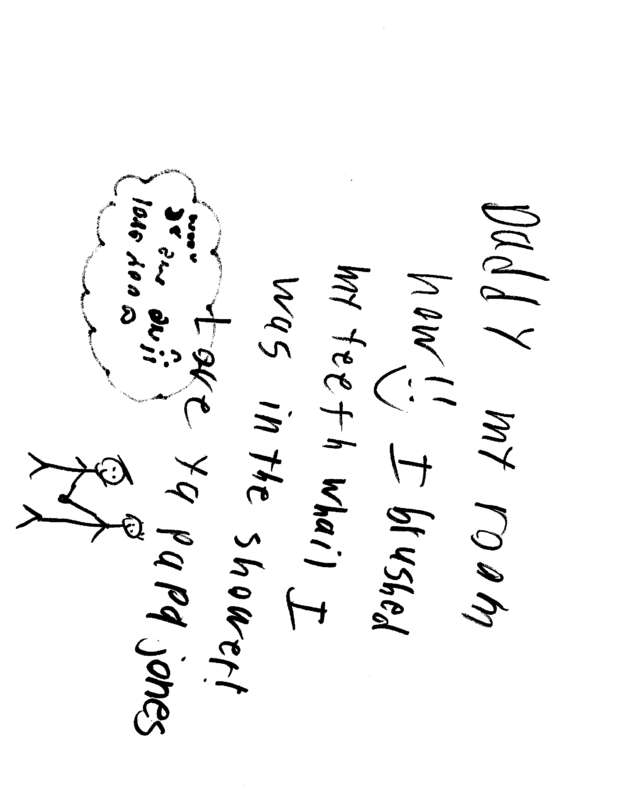 Daddy my room
how!! I brushed
my teeth whail I
was in the shower!!
Love ya papa jones